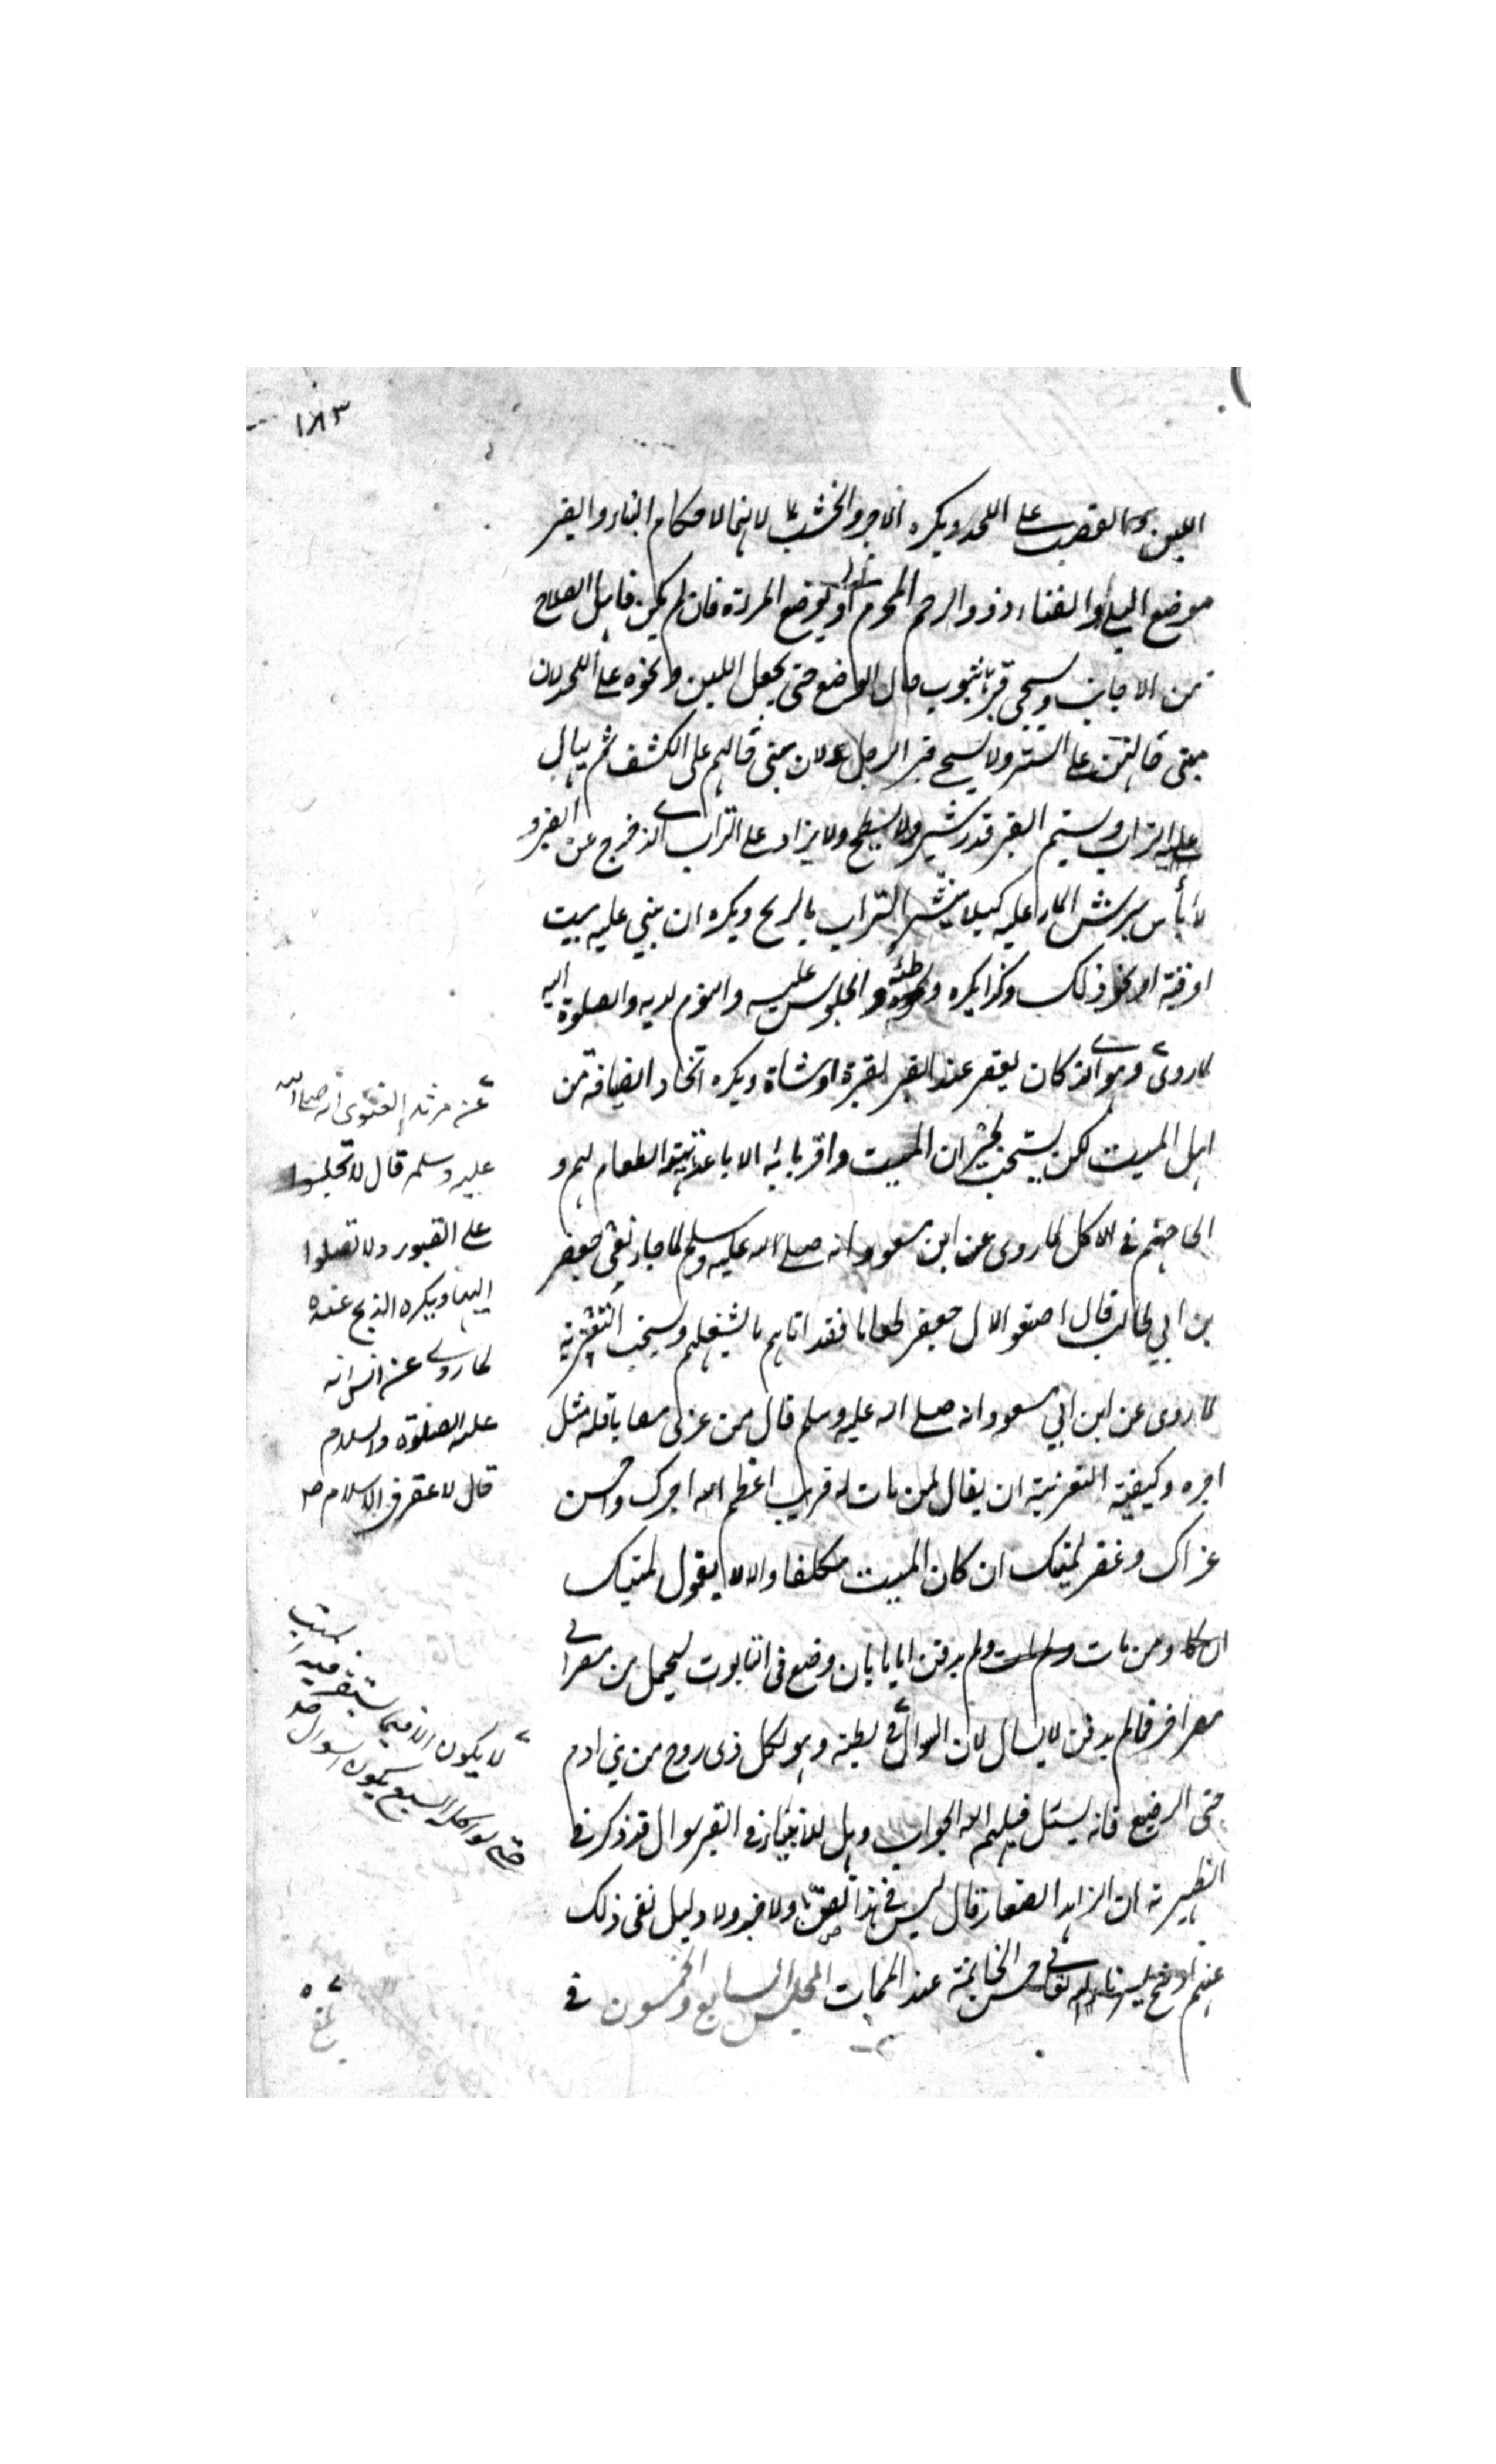 ١٨٣
اللبن والقصب على اللحد ويكره الاجر والخشب لانهما لاحكام البناء والقبر
موضع البلى والفناء وذو الرحم المحرم اولى بوضع المرءة فان لم يكن فاهل الصلاح
من الاجانب ويسجى قبرها بثوب حال الوضع حتى يجعل اللبن ونحوه على اللحد لان
مبنى حالهن على الستر ولا يسجى قبر الرجل لان مبنى حالهم على الكشف ثم يهال
عليه التراب ويسنم القبر قدر شبر ولا يسطح ولا يزاد على التراب الذي خرج عن القبر و
لا بأس برش الماء عليه كيلا ينتشر التراب بالريح ويكره ان يبنى عليه بيت
او قبة او نحو ذلك وكذا يكره وطئه والجلوس عليه والنوم لديه والصلوة اليه
لما روى وهو الذي كان يعقر عند القبر بقرة او شاة ويكره اتخاذ الضيافة من
اهل الميت لكن يستحب لجيران الميت واقربائه الاباعد تهيئة الطعام لهم و
الحاحهم في الاكل لما روى عن ابن مسعود انه صلى الله عليه وسلم لما جاء نعي جعفر
بن ابي طالب قال اصنعوا لال جعفر طعاما فقد اتاهم ما يشغلهم ويستحب التعزية
لما روى عن ابن ابي مسعود انه صلى الله عليه وسلم قال من عزى مصابا فله مثل
اجره وكيفية التعزية ان يقال لمن مات له قريب اعظم الله اجرك واحسن
عزاك وغفر لميتك ان كان الميت مكلفا والا لا يقول لميتك
ومن مات ولم يدفن اياما بان وضع في التابوت ليحمل من مصر الى
مصر اخر فما لم يدفن لا يسال لان السوال في بطنه وهو لكل ذى روح من بني ادم
حتى الرضيع فانه يسئل فيلهم الله الجواب وهل للانبياء في القبر سوال قد ذكر في
الظهيرية ان الزاهد الصفار قال ليس في هذا نص ولا خبر ولا دليل نفى ذلك
عنهم حسن الخاتمة عند الممات المجلس السابع والخمسون في
عن مرثد الغنوى انه صلى الله
عليه وسلم قال لا تجلسوا
على القبور ولا تصلوا
اليها ويكره الذبح عنده
لما روى عن انس انه
عليه الصلوة والسلام
قال لا عقر في الاسلام صح
لا يكون الا فيما يستقر فيه الميت
حتى لو اكله السبع يكون السوال